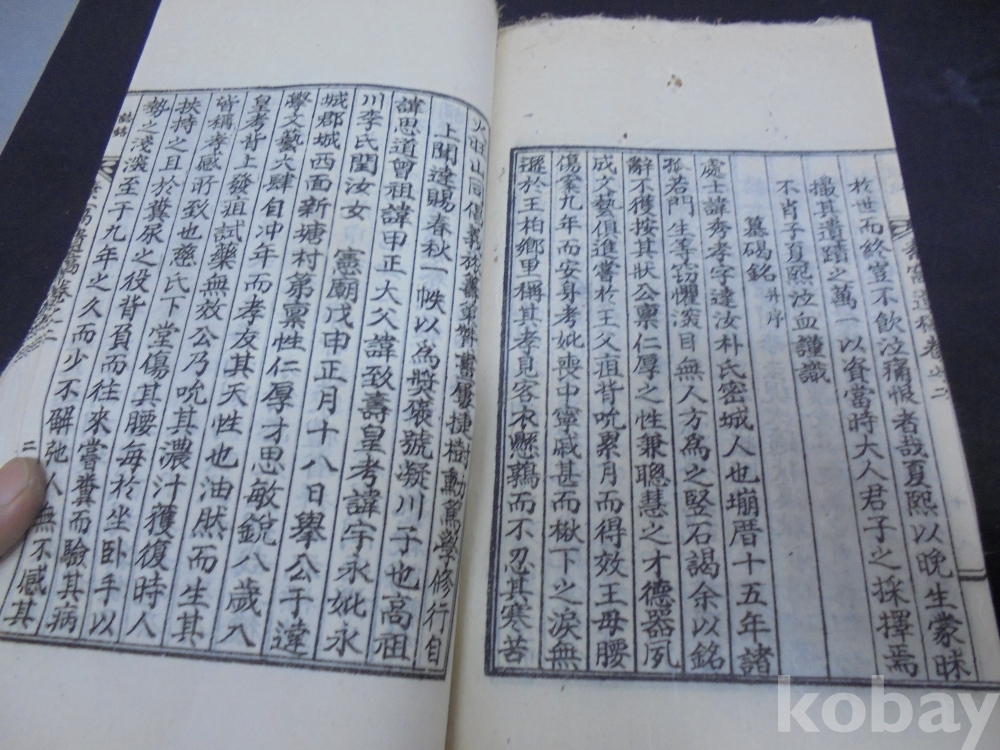 於世而終豈不飮泣痛恨者哉夏熙以晩生蒙昧
撮其遺蹟之萬一以資當時大人君子之採擇焉
不肖子夏熙泣血謹識
墓碣銘 幷序
處士諱秀孝字達汝朴氏密城人也堋曆十五年諸
孫若門生等窃懼滾目無人方爲之竪石謁余以銘
辭不獲按其狀公禀仁厚之性兼聰慧之才德器夙
成文藝俱進甞於王父疽背吮累月而得效王母腰
傷案九年而安身考妣喪中寧戚甚而楸下之淚無
遜於王柏鄕里稱其孝見客衣懸鶉而不忍其寒苦
遺稿卷之二
上聞達賜春秋一帙以爲奬褒號凝川子也高祖
諱思道曾祖諱申正大父諱致壽皇考諱宇永妣永
川李氏閏汝女 憲廟戊申正月十八日擧公于達
城郡城西面新塘村第禀性仁厚才思敏銳八歲入
學文藝大肆自冲年而孝友其天性也油然而生其
皇考背上發疽試藥無效公乃吮其濃汁獲復時人
皆稱孝感所致也慈氏下堂傷其腰每於坐卧手以
扶持之且於糞尿之役背負而往來甞糞而驗其病
勢之淺滾至于九年之久而少不解弛人無不感其
二
kobay